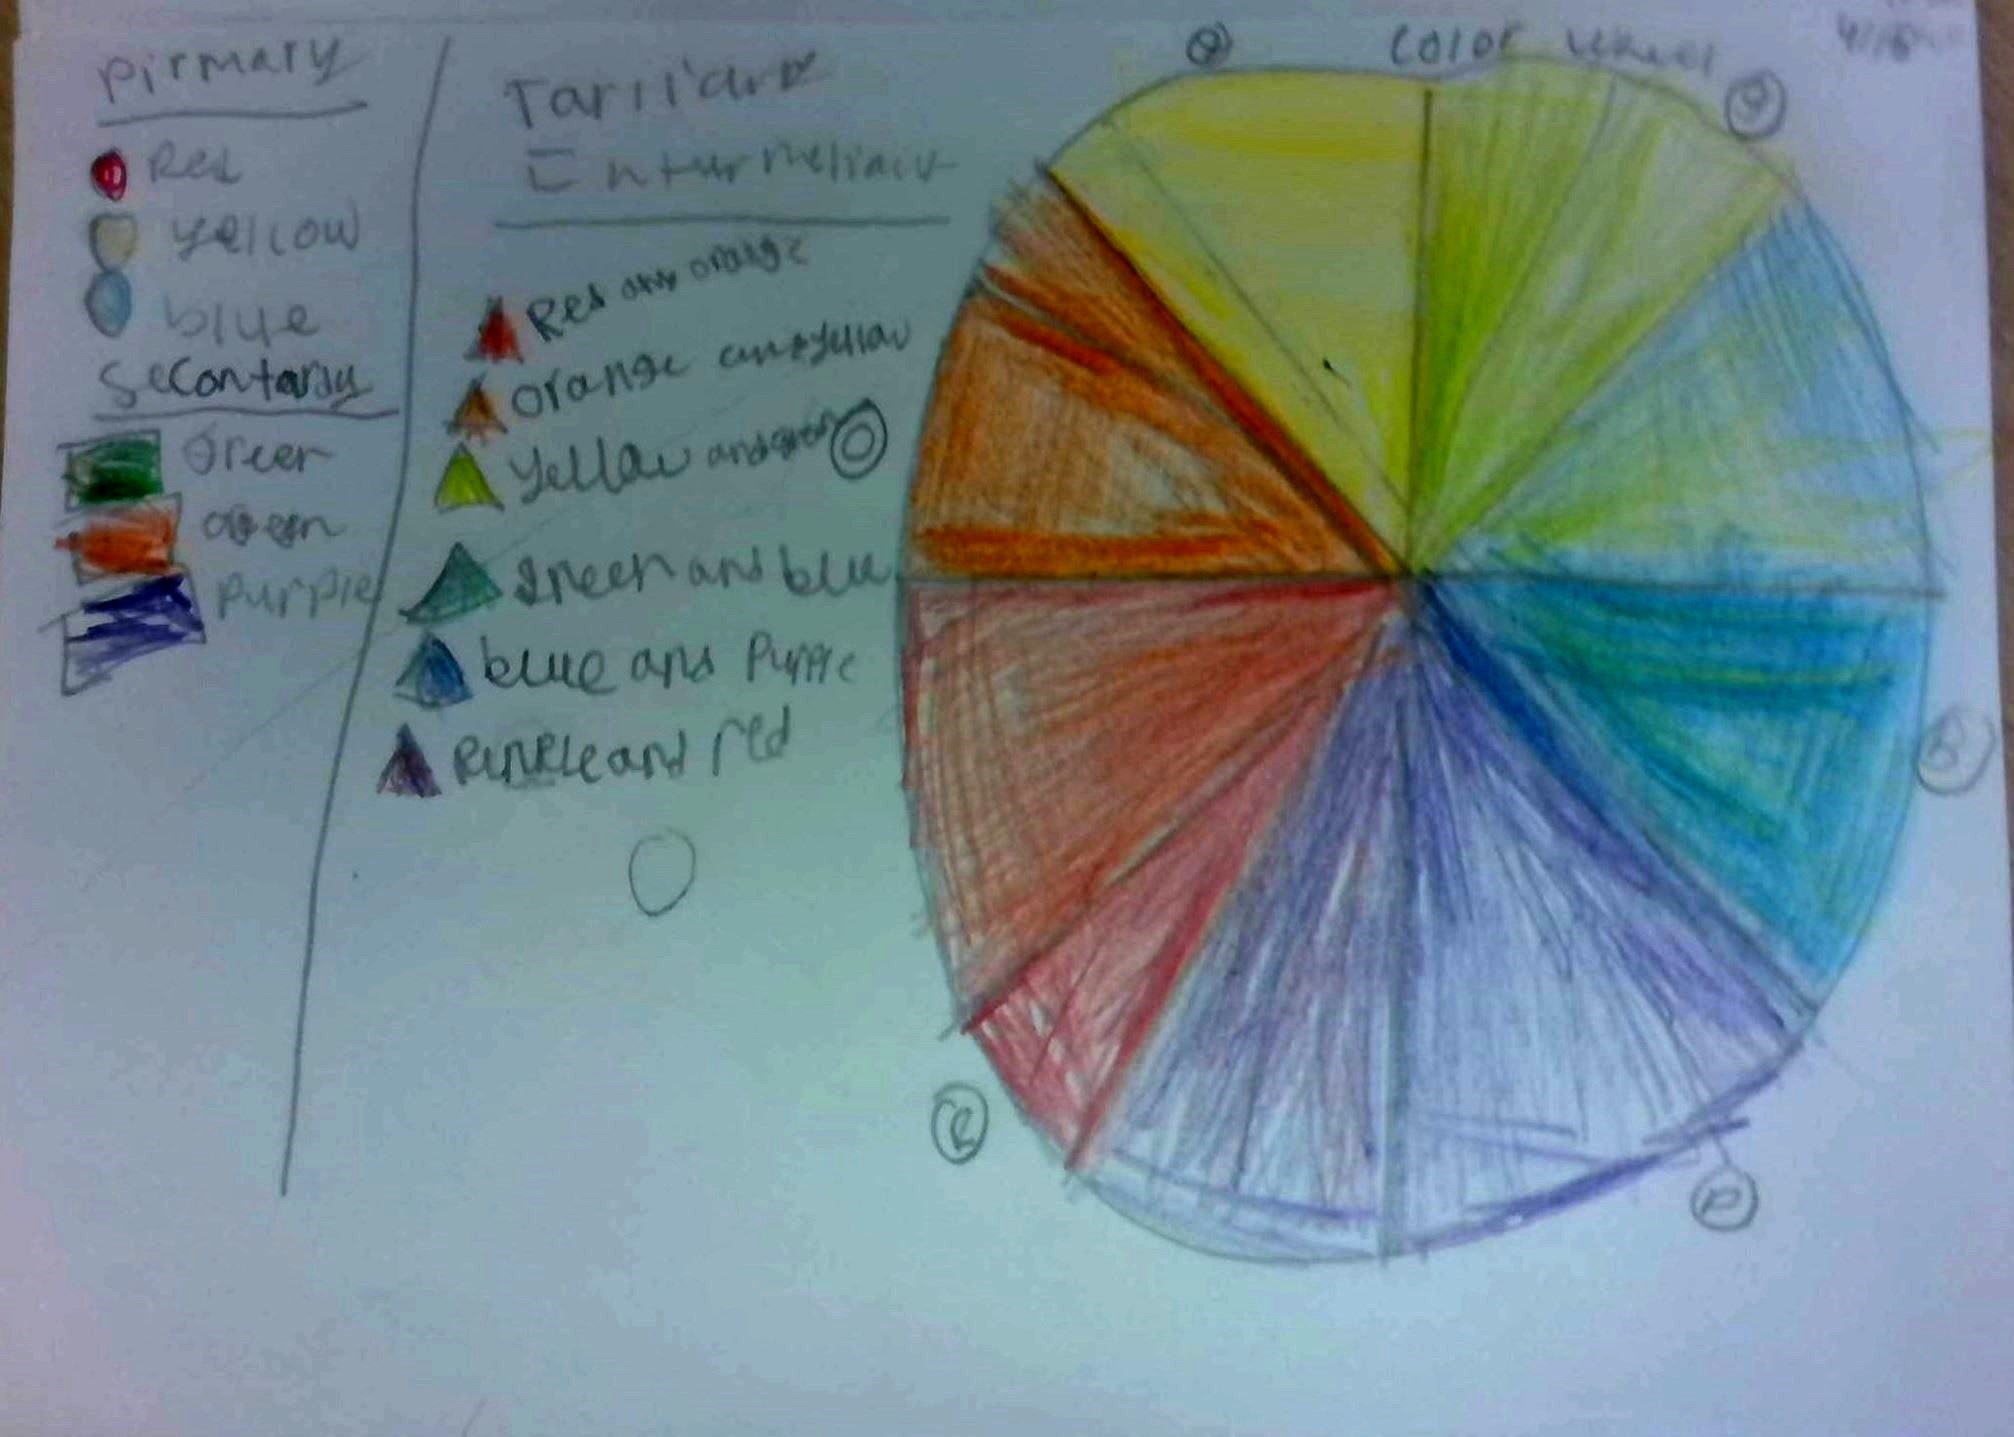 pirmary
Red
yellow
blue
Secontaray
Green
purple
Enturmeliaiv
Red and orange
orange and yellow
yellow and green
green and blue
blue and Purple
and red
Color wheel
B
R
P